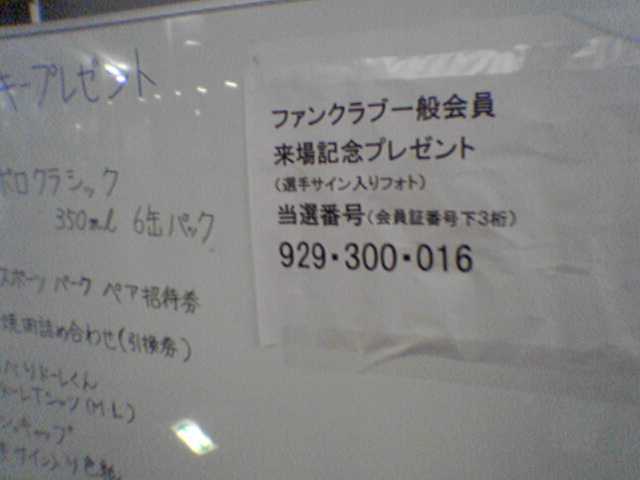 キープレゼント
ポロクラシック
350ml 6缶パック
スポーツ パーク ペア招待券
焼肉詰め合わせ(引換券)
ドーレくん
ドーレTシャツ(M・L)
キャップ
サイン入り色紙
ファンクラブ一般会員
来場記念プレゼント
(選手サイン入りフォト)
当選番号(会員証番号下3桁)
929・300・016